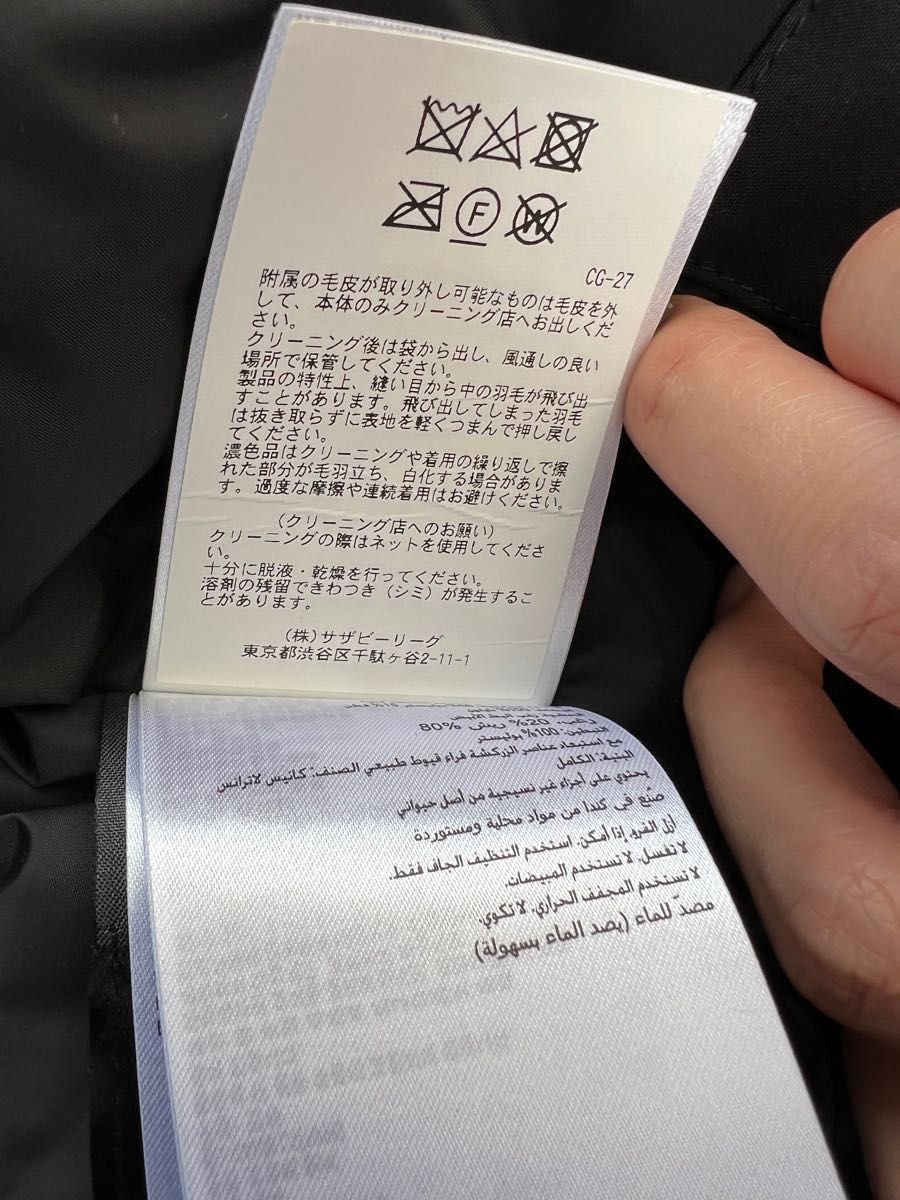 F
W
CG-27
附属の毛皮が取り外し可能なものは毛皮を外
して、本体のみクリーニング店へお出しくだ
さい。
クリーニング後は袋から出し、風通しの良い
場所で保管してください。
製品の特性上、縫い目から中の羽毛が飛び出
すことがあります。飛び出してしまった羽毛
は抜き取らずに表地を軽くつまんで押し戻し
てください。
濃色品はクリーニングや着用の繰り返しで擦
れた部分が毛羽立ち、白化する場合がありま
す。過度な摩擦や連続着用はお避けください。
（クリーニング店へのお願い）
クリーニングの際はネットを使用してくださ
い。
十分に脱液・乾燥を行ってください。
溶剤の残留できわつき（シミ）が発生するこ
とがあります。
（株）サザビーリーグ
東京都渋谷区千駄ヶ谷2-11-1
20% ريش 80%
التبطين: 100% بوليستر
مع استبعاد عناصر الزركشة فراء قيوط طبيعي الصنف: كانيس لاترانس
البنية: الكامل
يحتوي على أجزاء غير نسيجية من أصل حيواني
صنع في كندا من مواد محلية ومستوردة
أزل الفرو إذا أمكن. استخدم التنظيف الجاف فقط.
لا تغسل. لا تستخدم المبيضات.
لا تستخدم المجفف الحراري. لا تكوي.
مصدّ للماء (يصد الماء بسهولة)